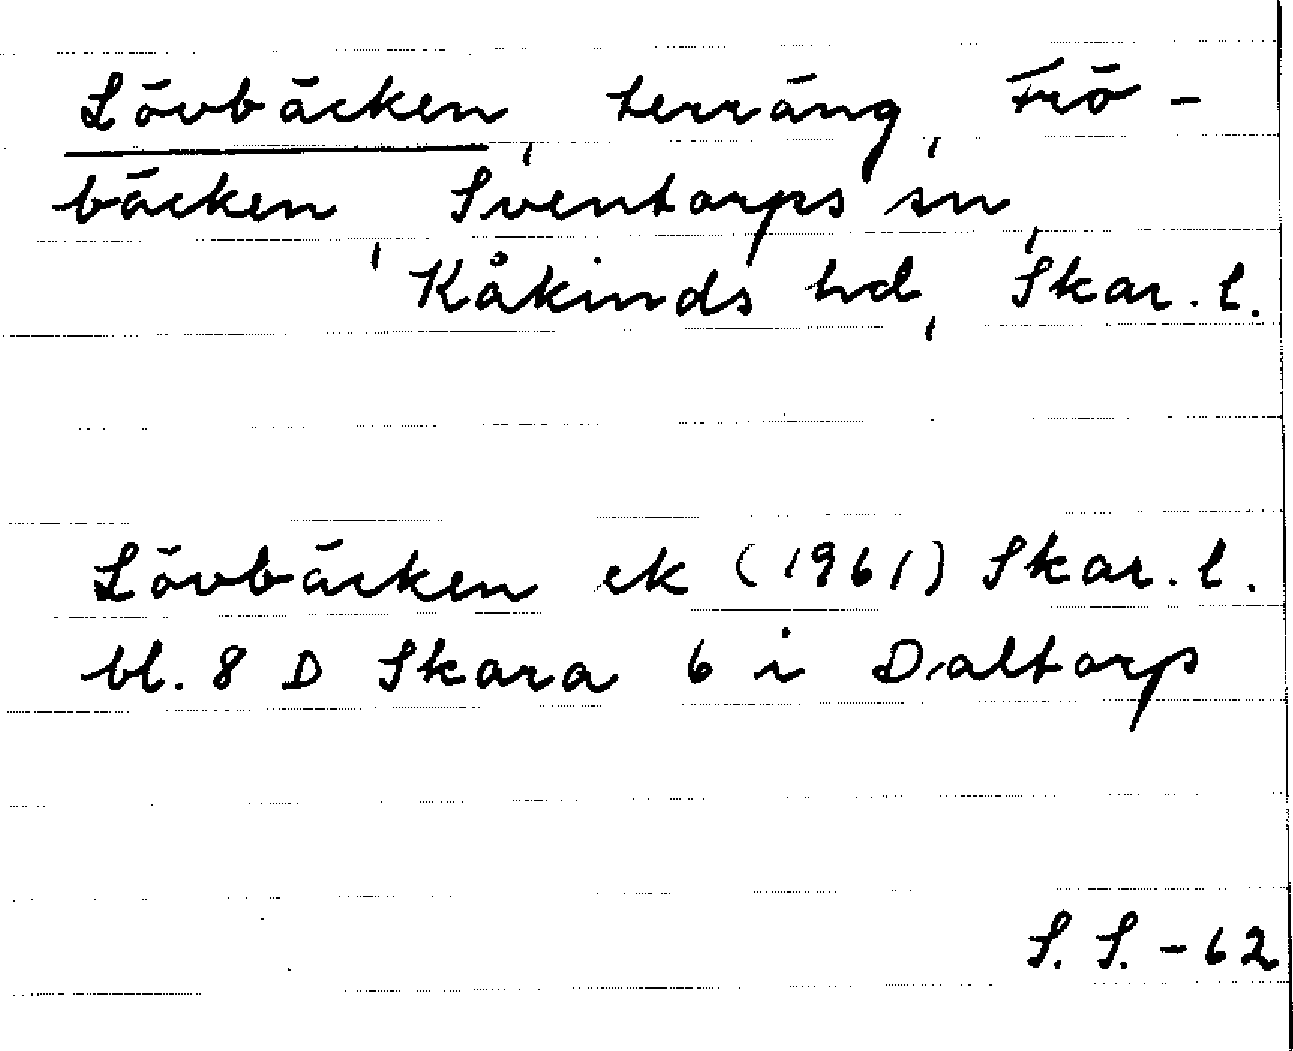 Lövbäcken, terräng, Frö-
bäcken, Sventorps sn,
Kåkinds hd, Skar. l.
Lövbäcken ek (1961) Skar. l.
bl. 8 D Skara 6 i Daltorp
S. S. - 62